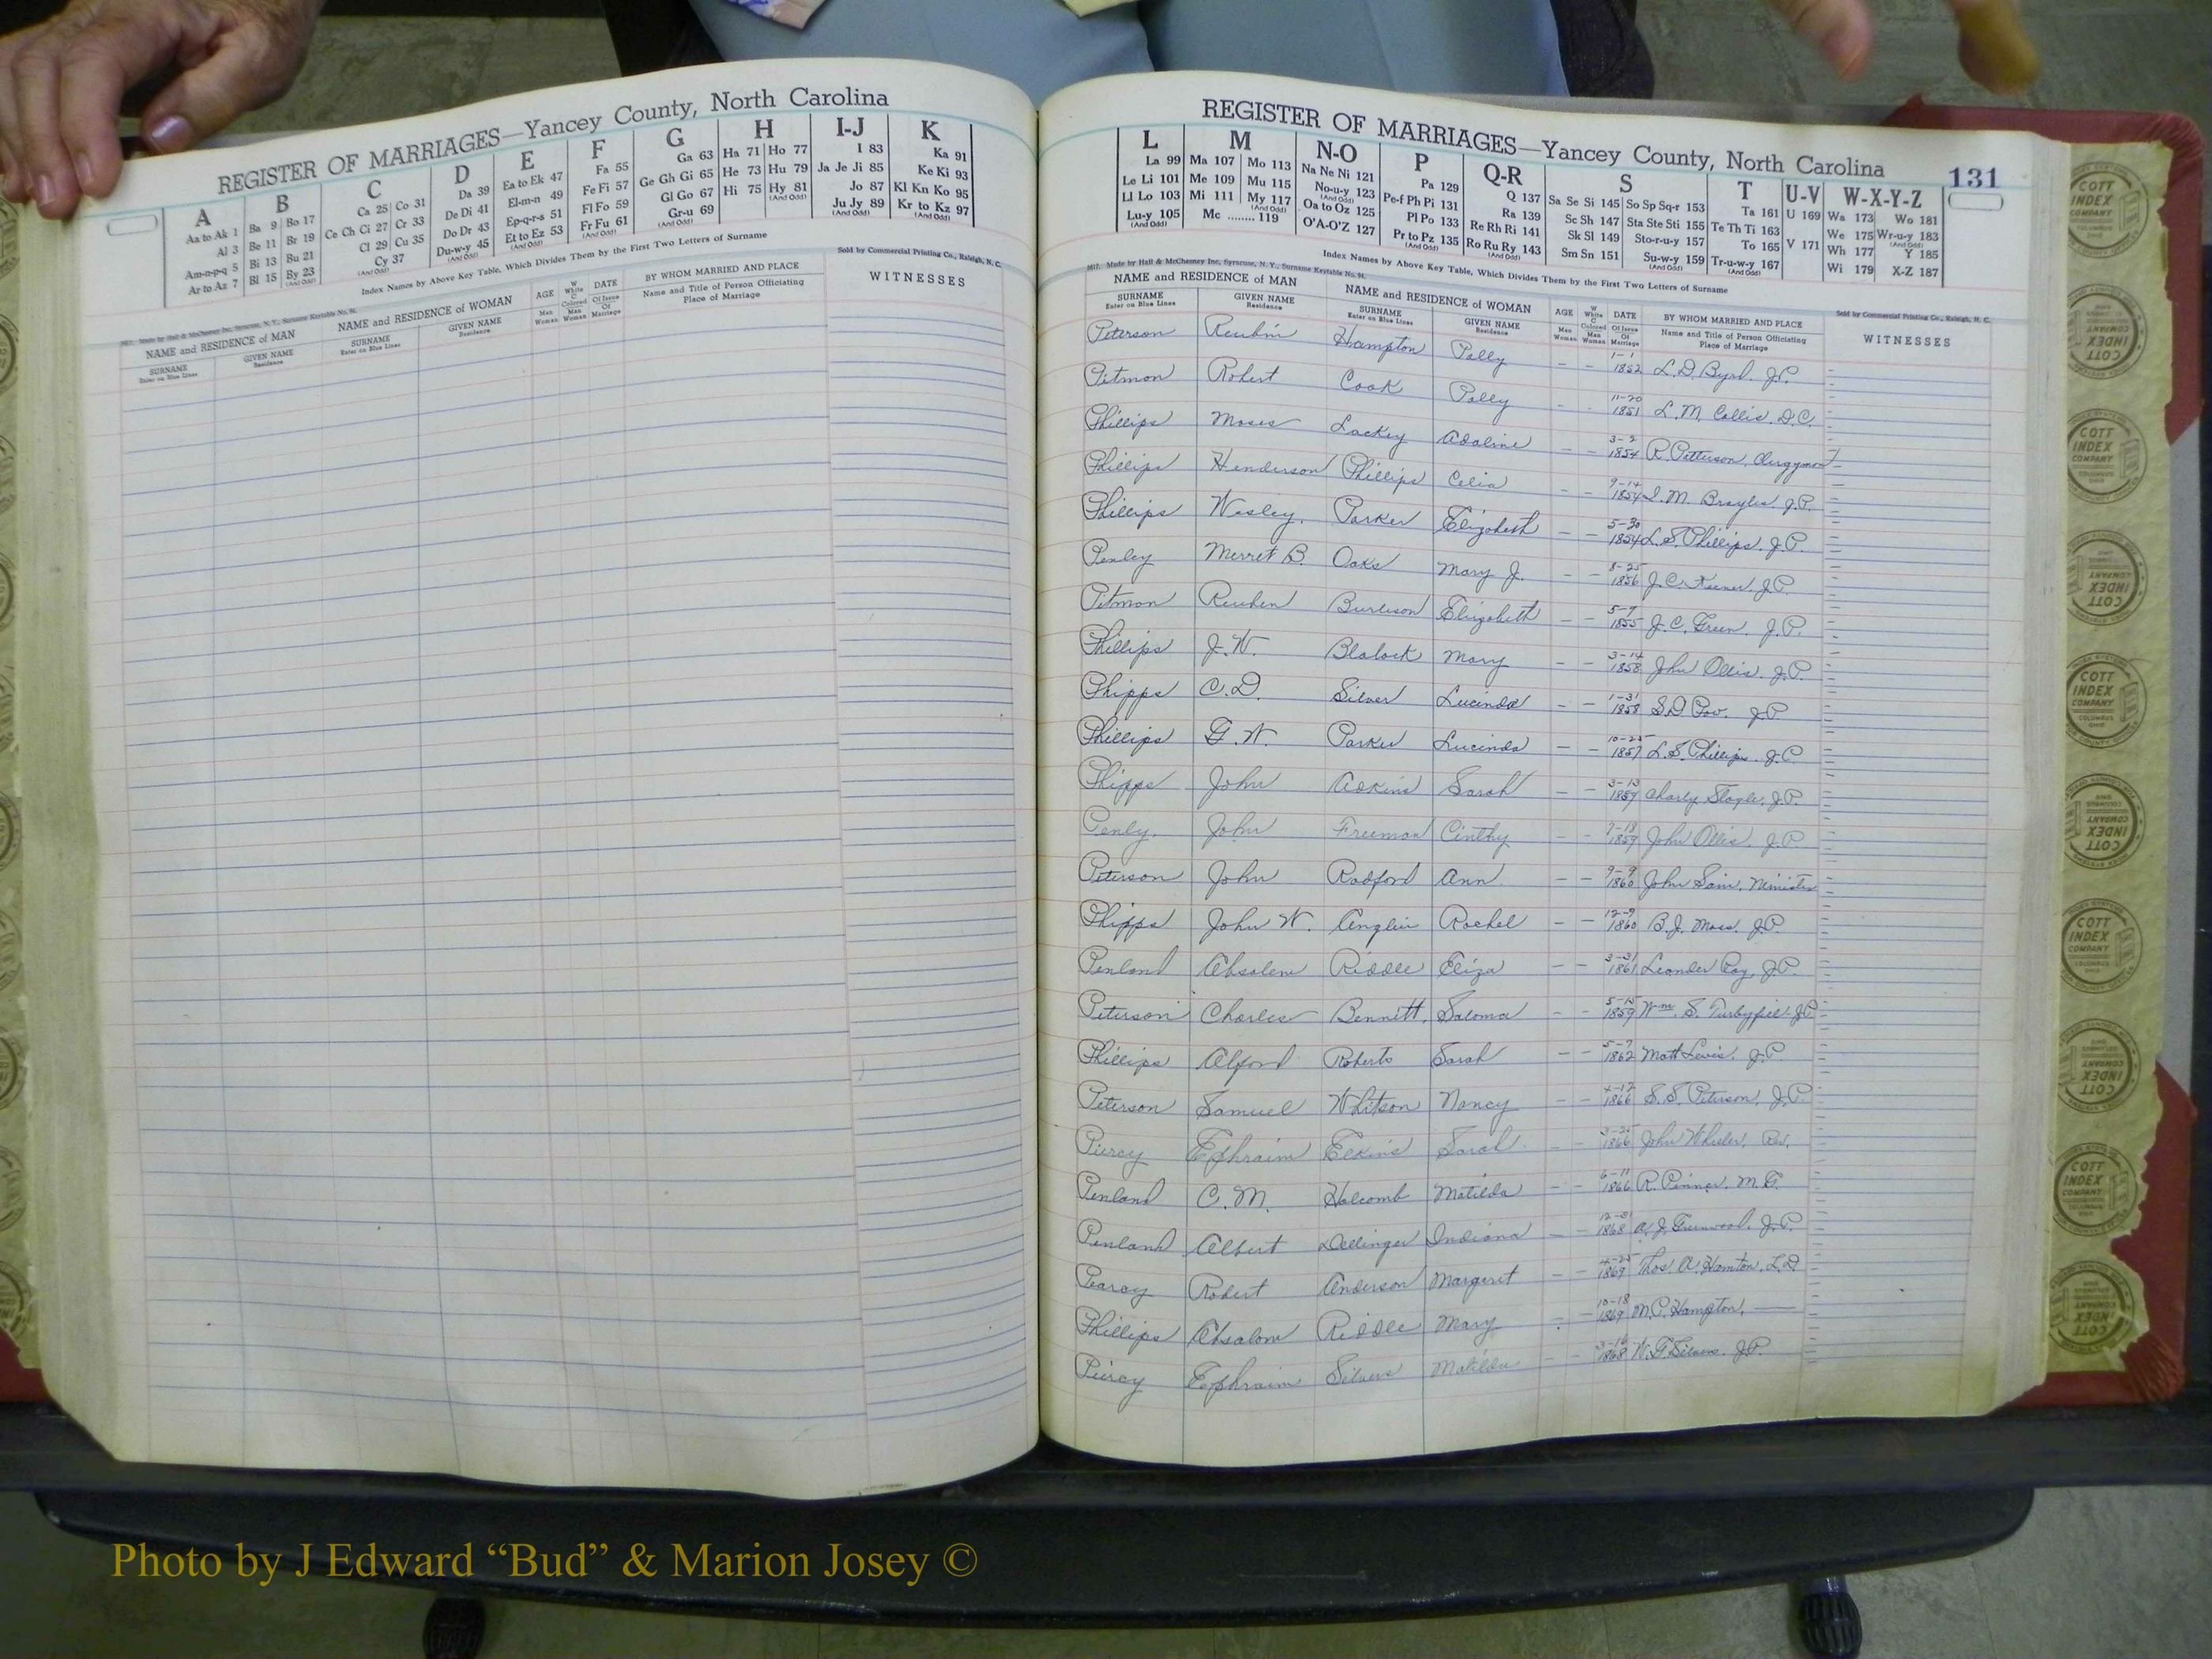 REGISTER OF MARRIAGES—Yancey County, North Carolina
A B C D E F G H I-J K
Aa to Ak 1 Al 3 Am-n-p-q 5 Ar to Az 7
Ba 9 Be 11 Bi 13 Bl 15 Bo 17 Br 19 Bu 21 By 23 (And Odd)
Ca 25 Ce Ch Ci 27 Cl 29 Co 31 Cr 33 Cu 35 Cy 37 (And Odd)
Da 39 De Di 41 Do Dr 43 Du-w-y 45 (And Odd)
Ea to Ek 47 El-m-n 49 Ep-q-r-s 51 Et to Ez 53 (And Odd)
Fa 55 Fe Fi 57 Fl Fo 59 Fr Fu 61 (And Odd)
Ga 63 Ge Gh Gi 65 Gl Go 67 Gr-u 69
Ha 71 He 73 Hi 75 Ho 77 Hu 79 Hy 81 (And Odd)
I 83 Ja Je Ji 85 Jo 87 Ju Jy 89 (And Odd)
Ka 91 Ke Ki 93 Kl Kn Ko 95 Kr to Kz 97 (And Odd)
Index Names by Above Key Table, Which Divides Them by the First Two Letters of Surname
Sold by Commercial Printing Co., Raleigh, N. C.
Made by Hall & McChesney Inc, Syracuse, N. Y., Surname Keytable No.
NAME and RESIDENCE of MAN NAME and RESIDENCE of WOMAN AGE DATE BY WHOM MARRIED AND PLACE WITNESSES
SURNAME Enter on Blue Lines GIVEN NAME Residence SURNAME Enter on Blue Lines GIVEN NAME Residence Man Woman W White C Colored Man Woman Of Issue Of Marriage Name and Title of Person Officiating Place of Marriage
REGISTER OF MARRIAGES—Yancey County, North Carolina 131
L M N-O P Q-R S T U-V W-X-Y-Z
La 99 Le Li 101 Ll Lo 103 Lu-y 105 (And Odd)
Ma 107 Me 109 Mi 111 Mc ........ 119 Mo 113 Mu 115 My 117 (And Odd)
Na Ne Ni 121 No-u-y 123 (And Odd) Oa to Oz 125 O'A-O'Z 127
Pa 129 Pe-f Ph Pi 131 Pl Po 133 Pr to Pz 135 (And Odd)
Q 137 Ra 139 Re Rh Ri 141 Ro Ru Ry 143
Sa Se Si 145 Sc Sh 147 Sk Sl 149 Sm Sn 151 So Sp Sq-r 153 Sta Ste Sti 155 Sto-r-u-y 157 Su-w-y 159 (And Odd)
Ta 161 Te Th Ti 163 To 165 Tr-u-w-y 167 (And Odd)
U 169 V 171
Wa 173 We 175 Wh 177 Wi 179 Wo 181 Wr-u-y 183 (And Odd) Y 185 X-Z 187
Index Names by Above Key Table, Which Divides Them by the First Two Letters of Surname
Made by Hall & McChesney Inc, Syracuse, N. Y., Surname Keytable No.
Sold by Commercial Printing Co., Raleigh, N. C.
NAME and RESIDENCE of MAN NAME and RESIDENCE of WOMAN AGE DATE BY WHOM MARRIED AND PLACE WITNESSES
SURNAME Enter on Blue Lines GIVEN NAME Residence SURNAME Enter on Blue Lines GIVEN NAME Residence Man Woman W White C Colored Man Woman Of Issue Of Marriage Name and Title of Person Officiating Place of Marriage
Peterson Reubin Hampton Polly - - 1-1 1852 L.D. Byrd. J.P.
Pitmon Robert Cook Polly - - 11-20 1851 L.M. Collis. D.C.
Phillips Moses Lackey Adaline - - 3-2 1854 R. Patterson, Clergyman
Phillips Henderson Phillips Celia - - 9-14 1854 J.M. Broyles. J.P.
Phillips Wesley. Parker Elizabeth - - 5-30 1854 L.S. Phillips. J.P.
Penley Merret B. Oaks Mary J. - - 8-25 1856 J.C. Keener. J.P.
Pitmon Reuben Burleson Elizabeth - - 5-7 1855 J.C. Green. J.P.
Phillips J.W. Blalock Mary - - 3-14 1858 John Ollis. J.P.
Phipps C.D. Silver Lucinda - - 1-31 1858 S.D. J.P.
Phillips G.W. Parker Lucinda - - 10-25 1857 L.S. Phillips. J.P.
Phipps John Adkins Sarah - - 3-13 1859 Charly J.P.
Penly. John Freeman Cinthy - - 7-18 1859 John Ollis. J.P.
Peterson John Radford Ann - - 9-9 1860 John Sain, Minister
Phipps John W. Anglin Rachel - - 12-9 1860 B.J. Moss. J.P.
Penland Absalem Riddle Eliza - - 3-31 1861 Leander Ray, J.P.
Peterson Charles Bennett. Saloma - - 5-15 1859 Wm. S. Turbyfill. J.P.
Phillips Alford Roberts Sarah - - 5-7 1862 Matt Lewis. J.P.
Peterson Samuel Whitson Nancy - - 4-17 1866 S.S. Peterson, J.P.
Piercy Ephraim Elkins Sarah - - 3-25 1866 John Wheeler, Rev.
Penland C.M. Holcomb Matilda - - 6-11 1866 R. Penner. M.G.
Penland Albert Dellinger Indiana - - 12-31 1868 A.J. Greenwood. J.P.
Pearcy Robert Anderson Margaret - - 4-25 1869 Thos. A. Hamton, L.D
Phillips Absalom Riddle Mary - - 10-18 1869 M.P. Hampton, —
Piercy Ephraim Silvers Matilda - - 3-16 1868 W.G. Silvers. J.P.
COTT INDEX COMPANY COLUMBUS OHIO
Photo by J Edward “Bud” & Marion Josey ©